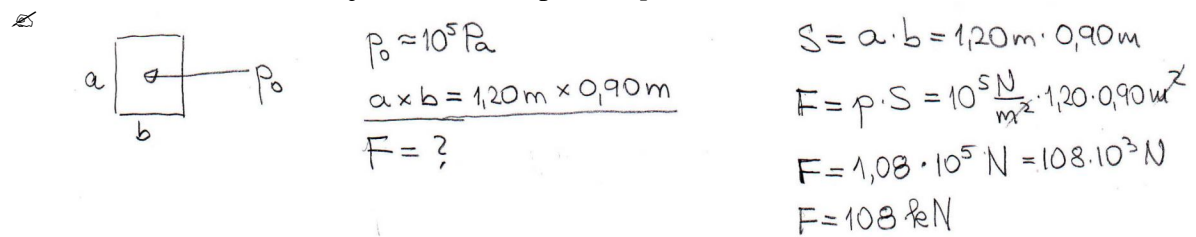 a
b
p₀
p₀ ≈ 10⁵ Pa
a × b = 1,20 m × 0,90 m
F = ?
S = a · b = 1,20 m · 0,90 m
F = p · S = 10⁵ N/m² · 1,20 · 0,90 m²
F = 1,08 · 10⁵ N = 108 · 10³ N
F = 108 kN